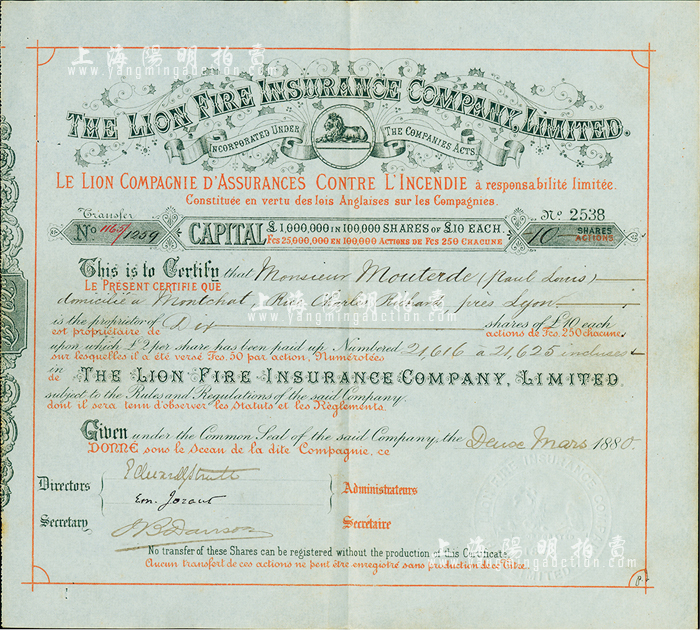 上海陽明拍賣
www.yangmingauction.com
THE LION FIRE INSURANCE COMPANY, LIMITED.
INCORPORATED UNDER THE COMPANIES ACTS
LE LION COMPAGNIE D'ASSURANCES CONTRE L'INCENDIE à responsabilité limitée.
Constituée en vertu des lois Anglaises sur les Compagnies.
Transfer
No 1165/1259
CAPITAL £1,000,000 IN 100,000 SHARES OF £10 EACH.
Fcs 25,000,000 EN 100,000 ACTIONS DE Fcs 250 CHACUNE
No 2538
10 SHARES
ACTIONS
This is to Certify that Monsieur Mouterde (Paul Louis)
LE PRÉSENT CERTIFIE QUE
domicilié à Montchat, Rue Charles Richard, près Lyon
is the proprietor of Dix shares of £10 each
est propriétaire de actions de Fcs. 250 chacune
upon which £2 per share has been paid up. Numbered 21,616 à 21,625 incluses
sur lesquelles il a été versé Fcs. 50 par action, Numérotées
in THE LION FIRE INSURANCE COMPANY, LIMITED.
de
subject to the Rules and Regulations of the said Company.
dont il sera tenu d'observer les Statuts et les Règlements.
Given under the Common Seal of the said Company, the Deux Mars 1880.
DONNÉ sous le Sceau de la dite Compagnie, ce
Directors
Administrateurs
Em. Jozon
Secretary
Secrétaire
No transfer of these Shares can be registered without the production of this Certificate.
Aucun transfert de ces actions ne peut être enregistré sans production de ce Titre.
上海陽明拍賣
www.yangmingauction.com
上海陽明拍賣
www.yangmingauction.com